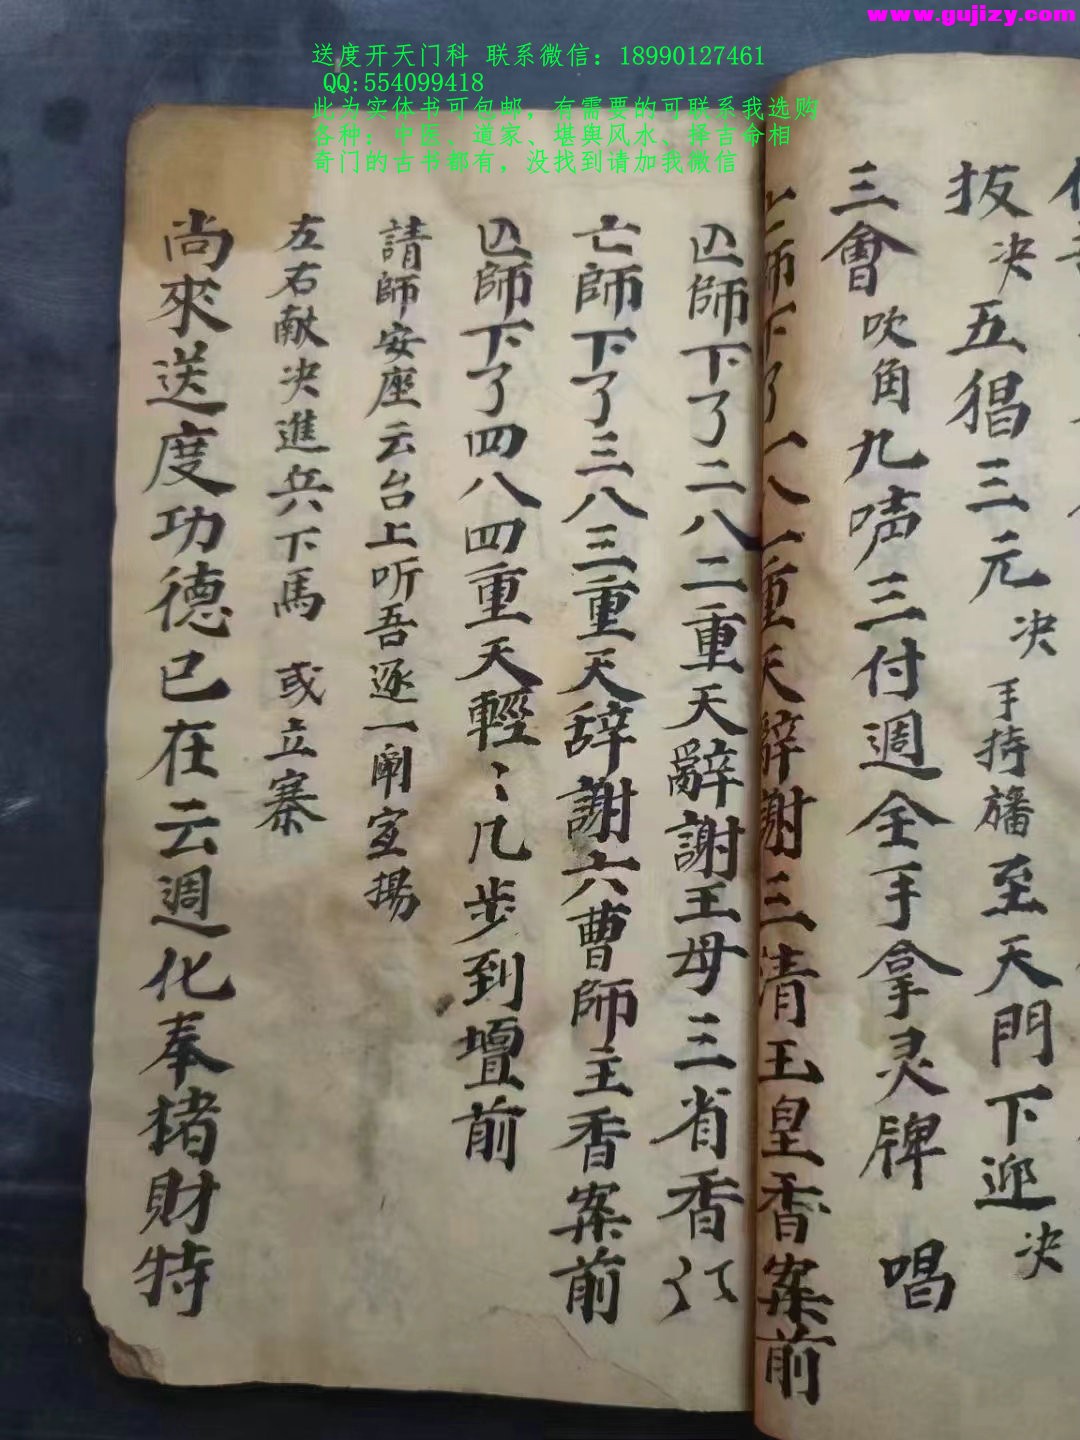 www.gujizy.com
送度开天门科 联系微信：18990127461
QQ:554099418
此为实体书可包邮，有需要的可联系我选购
各种：中医、道家、堪舆风水、择吉命相
奇门的古书都有，没找到请加我微信
拔决五猖三元决手持旛至天門下迎决
三會吹角九声三付週全手拿灵牌 唱
亡師下了一八一重天辞謝三清玉皇香案前
亡師下了二八二重天辭謝王母三省香
亡師下了三八三重天辞謝六曹師主香案前
亡師下了四八四重天輕〻几步到壇前
請師安座云台上听吾逐一阐宣揚
左右献决進兵下馬 或立寨
尚來送度功德已在云週化奉楮財特